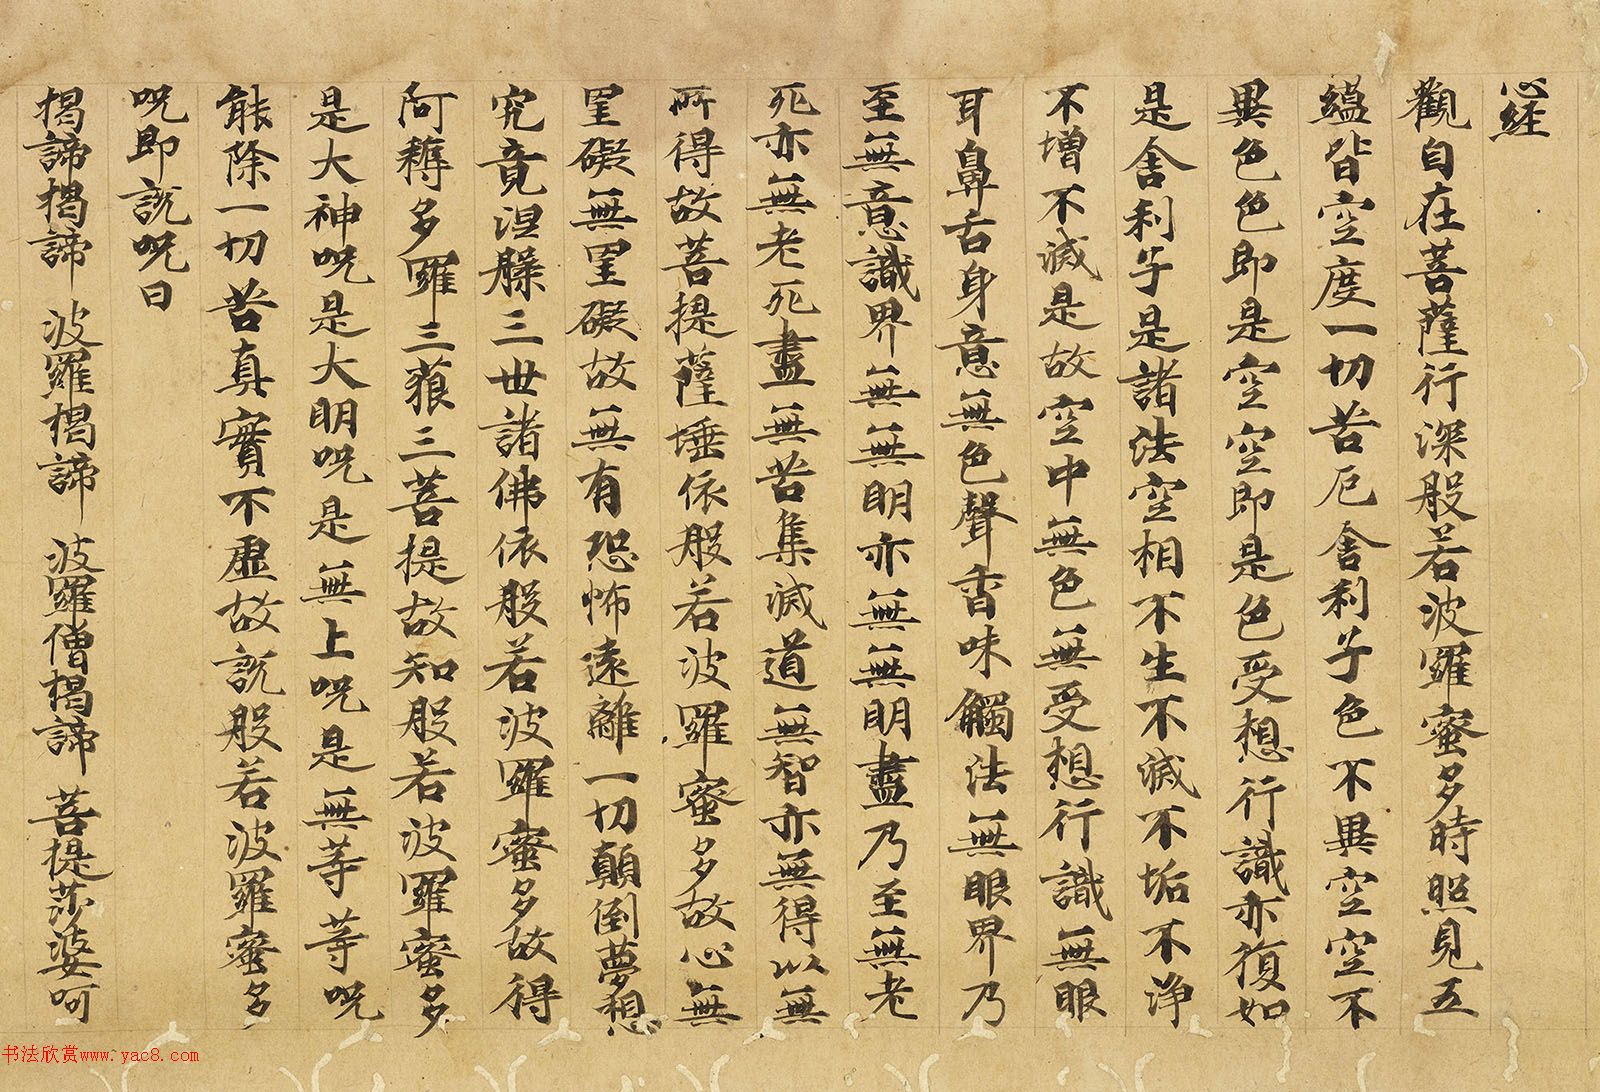 心経
觀自在菩薩行深般若波羅蜜多時照見五
蘊皆空度一切苦厄舍利子色不異空空不
異色色即是空空即是色受想行識亦復如
是舍利子是諸法空相不生不滅不垢不淨
不增不滅是故空中無色無受想行識無眼
耳鼻舌身意無色聲香味觸法無眼界乃
至無意識界無無明亦無無明盡乃至無老
死亦無老死盡無苦集滅道無智亦無得以無
所得故菩提薩埵依般若波羅蜜多故心無
罣礙無罣礙故無有恐怖遠離一切顛倒夢想
究竟涅槃三世諸佛依般若波羅蜜多故得
阿耨多羅三藐三菩提故知般若波羅蜜多
是大神呪是大明呪是無上呪是無等等呪
能除一切苦真實不虛故説般若波羅蜜多
呪即說呪曰
揭諦揭諦 波羅揭諦 波羅僧揭諦 菩提莎婆呵
书法欣赏www.yac8.com